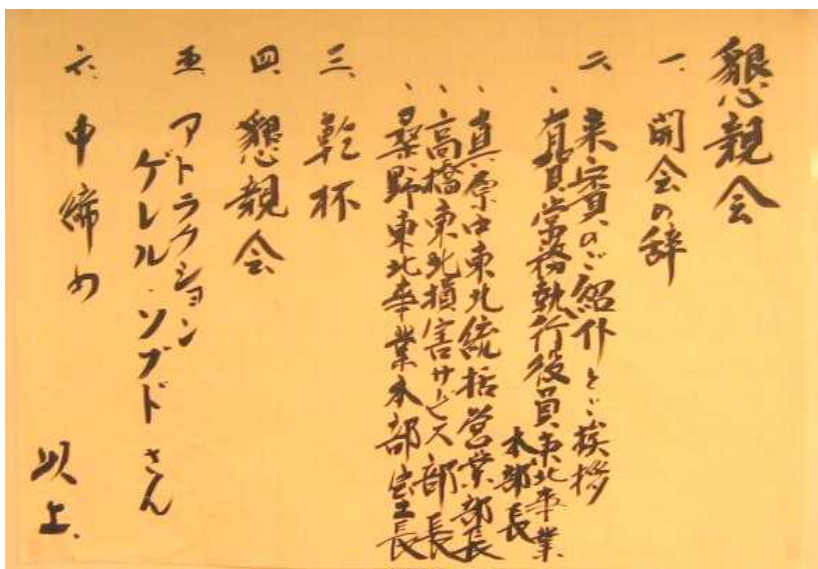 懇親会
一、開会の辞
二、来賓のご紹介とご挨拶
、有賀常務執行役員東北本業
本部長
、真原中東北統括営業部長
、高橋東北損害サービス部長
、桑野東北本業本部室長
三、乾杯
四、懇親会
五、アトラクション
ゲレル・ソブドさん
六、中締め
以上、